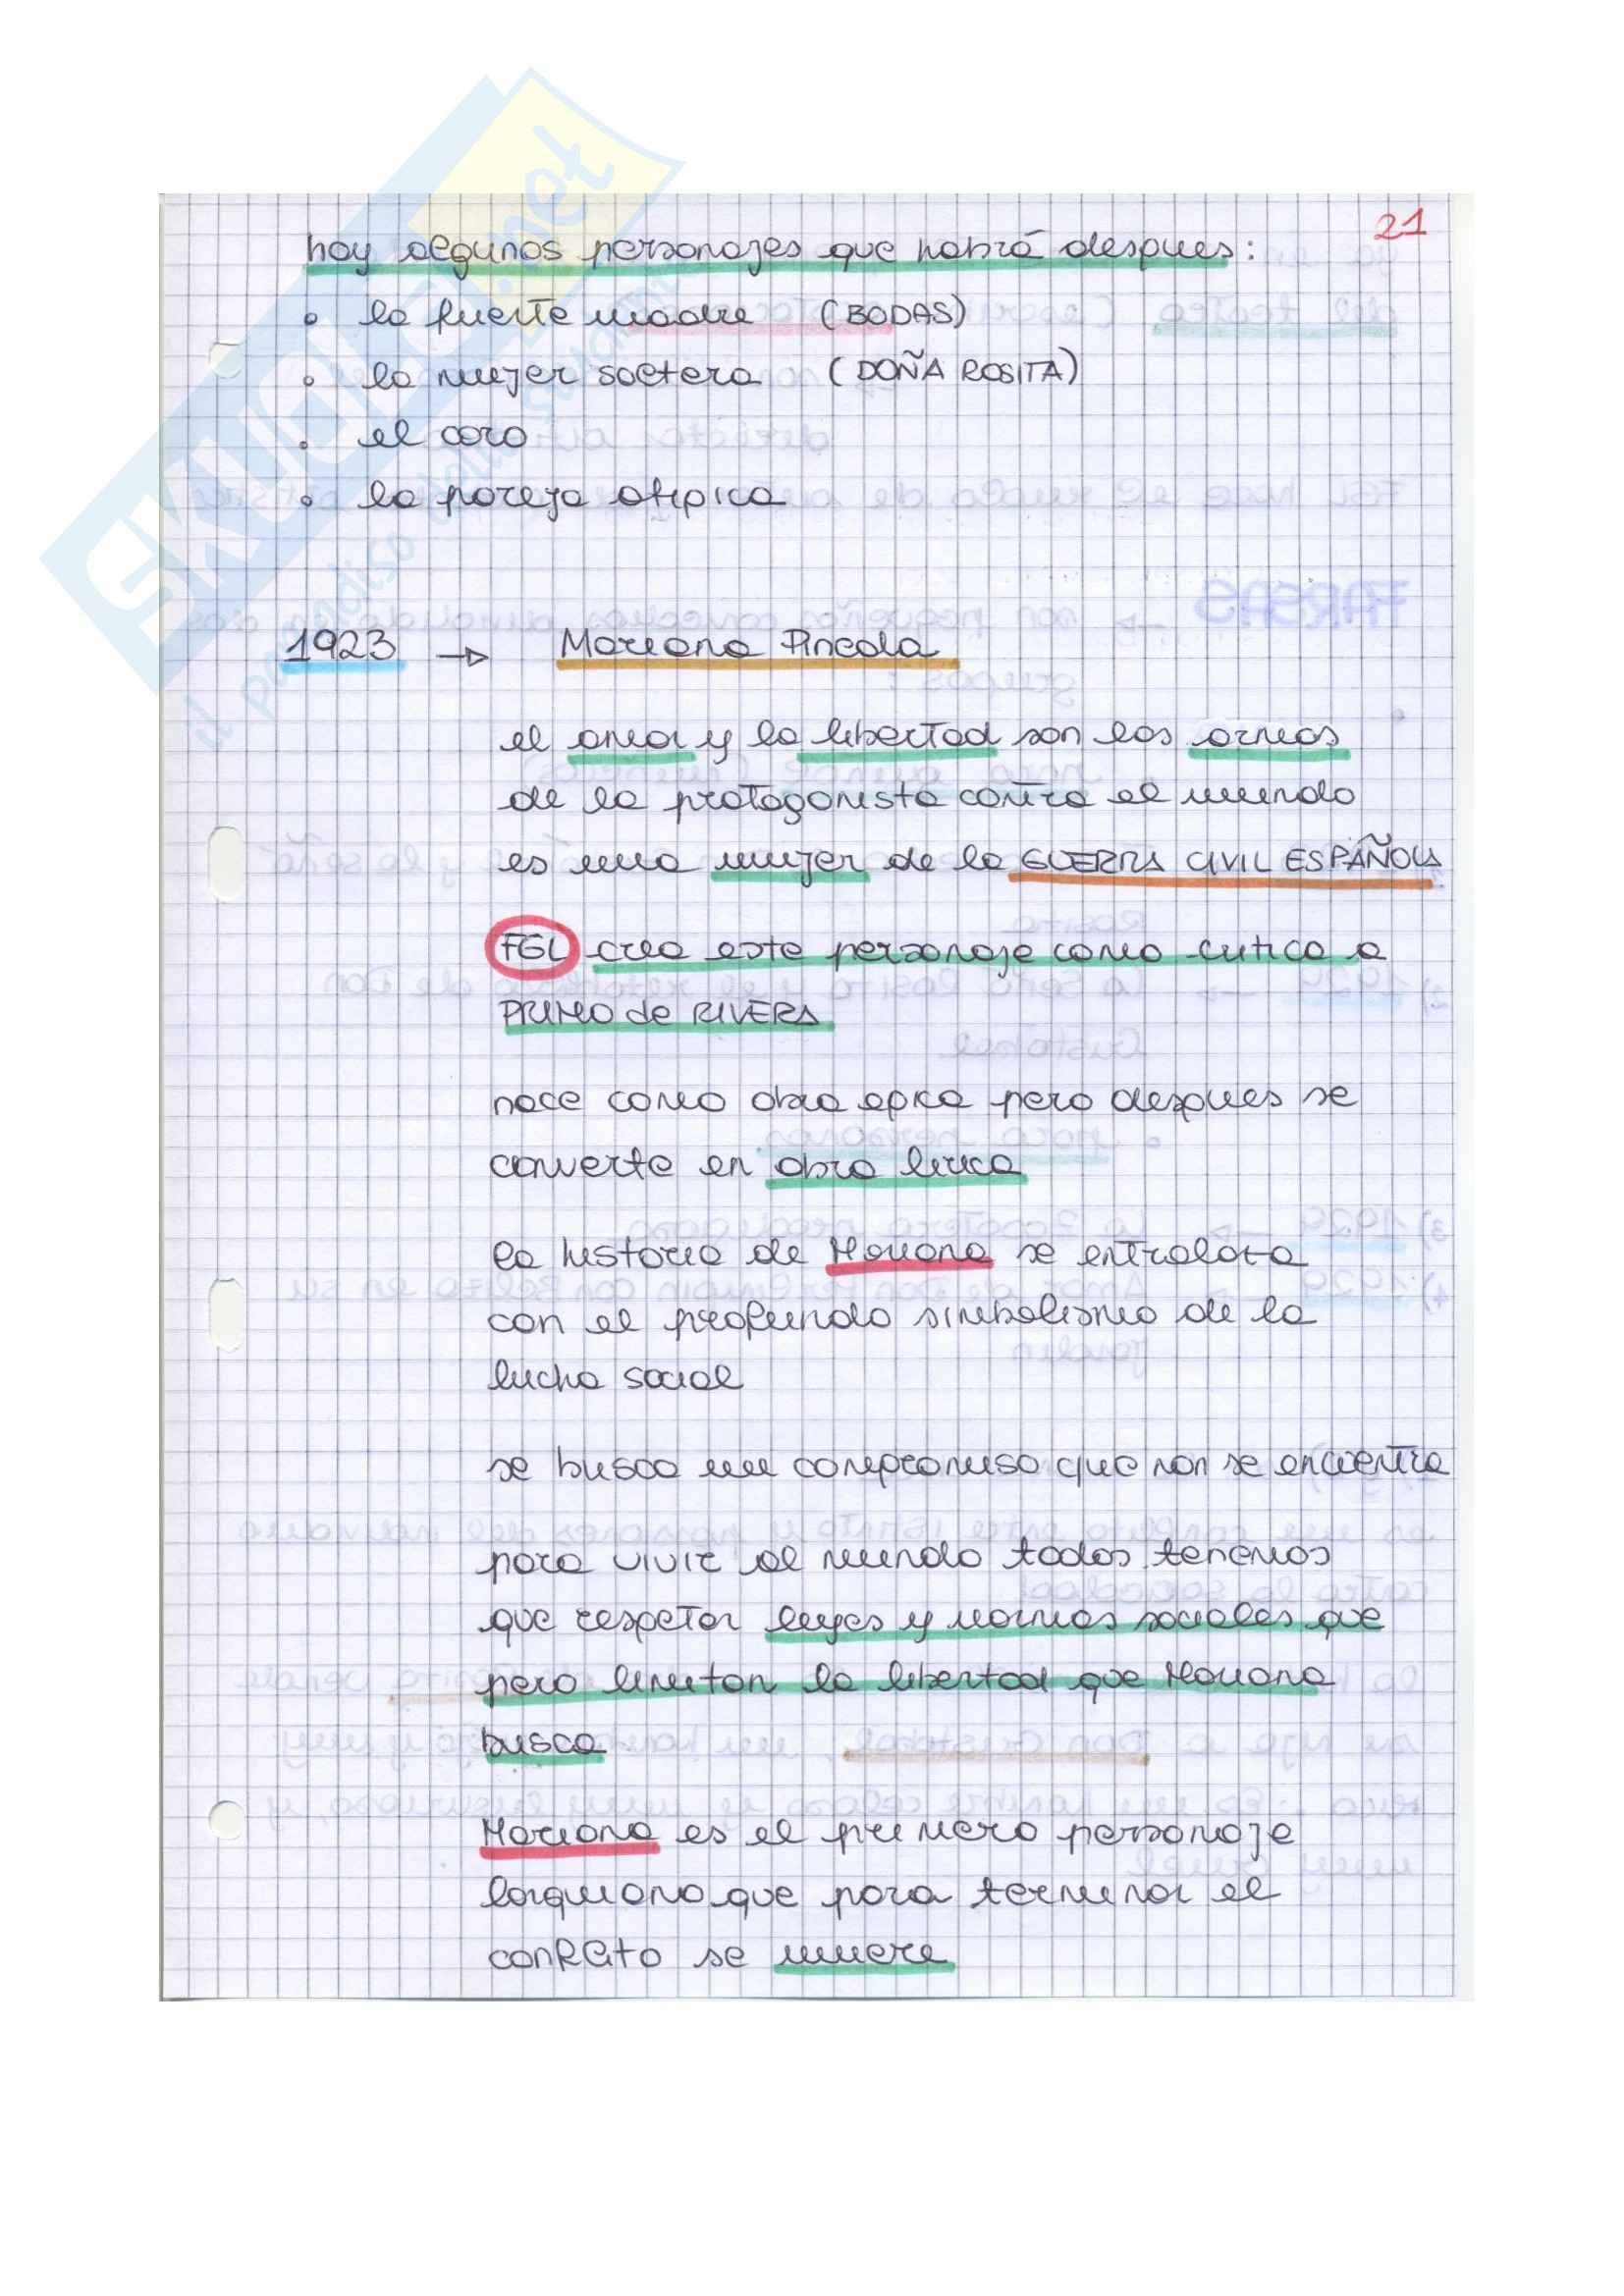 21
hay algunos personajes que habrá despues:
• la fuerte madre (BODAS)
• la mujer soltera (DOÑA ROSITA)
• el coro
• la pareja atipica
1923 → Mariana Pineda
el amor y la libertad son las armas
de la protagonista contra el mundo
es una mujer de la GUERRA CIVIL ESPAÑOLA
FGL crea este personaje como critica a
PRIMO de RIVERA
nace como obra epica pero despues se
converte en obra lirica
la historia de Mariana se entralata
con el profundo simbolismo de la
lucha social
se busca un compromiso que non se encuentra
para vivir al mundo todos tenemos
que respetar leyes y normas sociales que
pero limitan la libertad que Mariana
busca
Mariana es el primero personaje
lorquiano que para terminar el
conflito se muere
SKUOLA.net
il paradiso dello studente